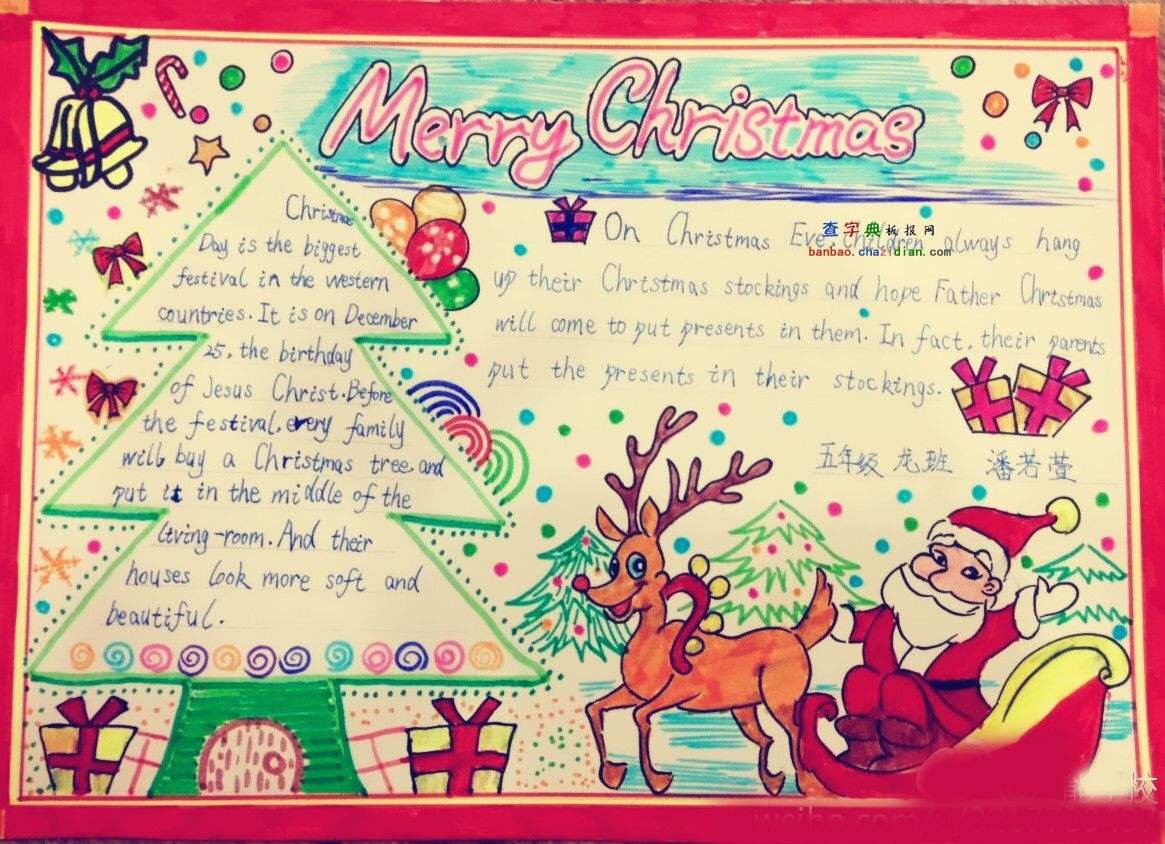 Merry Christmas
Christmas
Day is the biggest
festival in the western
countries. It is on December
25, the birthday
of Jesus Christ. Before
the festival, every family
will buy a Christmas tree and
put it in the middle of the
living-room. And their
houses look more soft and
beautiful.
On Christmas Eve, children always hang
up their Christmas stockings and hope Father Christmas
will come to put presents in them. In fact, their parents
put the presents in their stockings.
五年级 龙班 潘若萱
查字典板报网
banbao.chazidian.com
校
weibo.com/